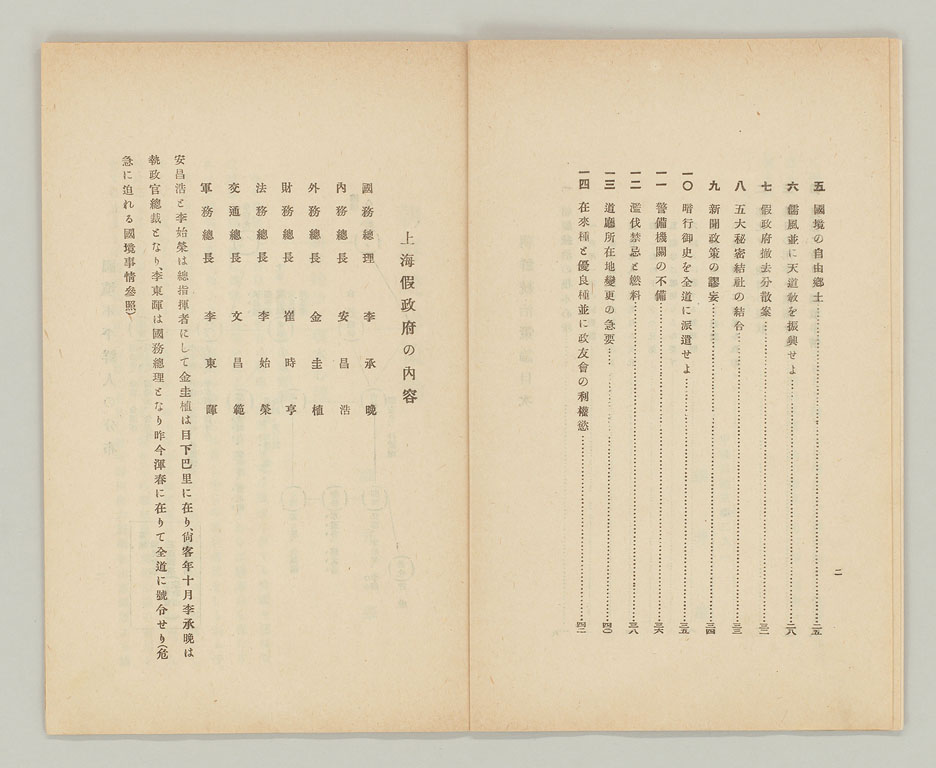 五 國境の自由鄕土……二五
六 儒風並に天道敎を振興せよ……二八
七 假政府撤去分散案……三二
八 五大秘密結社の結合……三三
九 新開政策の謬妄……三四
一〇 暗行御史を全道に派遣せよ……三五
一一 警備機關の不備……三六
一二 濫伐禁忌と燃料……三八
一三 道廳所在地變更の急要……四〇
一四 在來種と優良種並に政友會の利權慾……四二
二
上海假政府の內容
國務總理 李承晩
內務總長 安昌浩
外務總長 金圭植
財務總長 崔時亨
法務總長 李始榮
交通總長 文昌範
軍務總長 李東暉
安昌浩と李始榮は總指揮者にして金圭植は目下巴里に在り、尙客年十月李承晩は
執政官總裁となり、李東暉は國務總理となり昨今渾春に在りて全道に號令せり(危
急に迫れる國境事情參照)